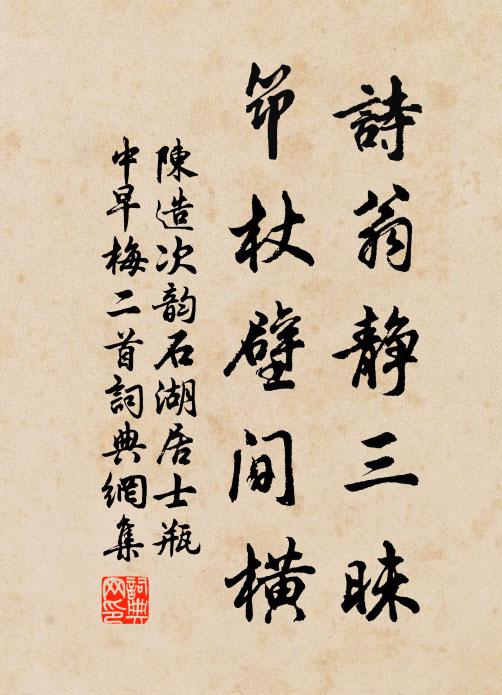 詩翁靜三昧
笻杖壁間橫
陳造次韵石湖居士瓶
中早梅二首詞典網集
詞典网印